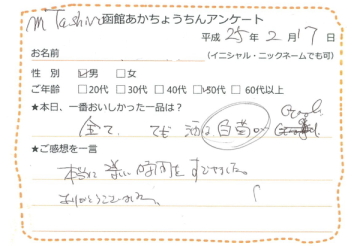 M Tashiro
函館あかちょうちんアンケート
平成 25年 2月 17日
お名前
(イニシャル・ニックネームでも可)
性 別 ☑男 □女
ご年齢 □20代 □30代 □40代 □50代 □60代以上
★本日、一番おいしかった一品は?
全て、 でも
Good
★ご感想を一言
本当に楽しい時間をすごせました。
ありがとうございました。